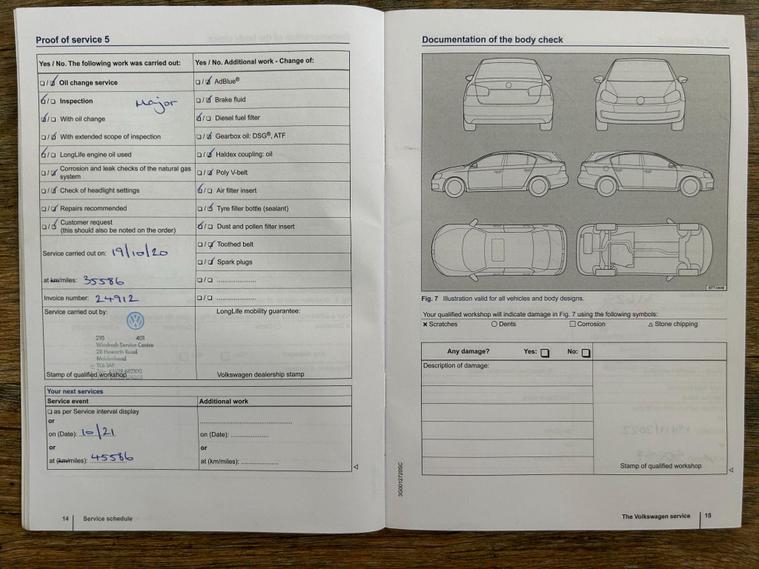 Proof of service 5
Yes / No. The following work was carried out:
Yes / No. Additional work - Change of:
Oil change service
AdBlue®
Inspection Major
Brake fluid
With oil change
Diesel fuel filter
With extended scope of inspection
Gearbox oil: DSG®, ATF
LongLife engine oil used
Haldex coupling: oil
Corrosion and leak checks of the natural gas
system
Poly V-belt
Check of headlight settings
Air filter insert
Repairs recommended
Tyre filler bottle (sealant)
Customer request
(this should also be noted on the order)
Dust and pollen filter insert
Service carried out on: 19/10/20
Toothed belt
Spark plugs
at km/miles: 35586
Invoice number: 24912
Service carried out by:
LongLife mobility guarantee:
Windrush Service Centre
Maidenhead
Stamp of qualified workshop
Volkswagen dealership stamp
Your next services
Service event
Additional work
as per Service interval display
or
on (Date): 10/21
on (Date):
or
or
at (km/miles): 45586
at (km/miles):
14 Service schedule
Documentation of the body check
Fig. 7 Illustration valid for all vehicles and body designs.
Your qualified workshop will indicate damage in Fig. 7 using the following symbols:
Scratches
Dents
Corrosion
Stone chipping
Any damage? Yes: No:
Description of damage:
Stamp of qualified workshop
The Volkswagen service 15